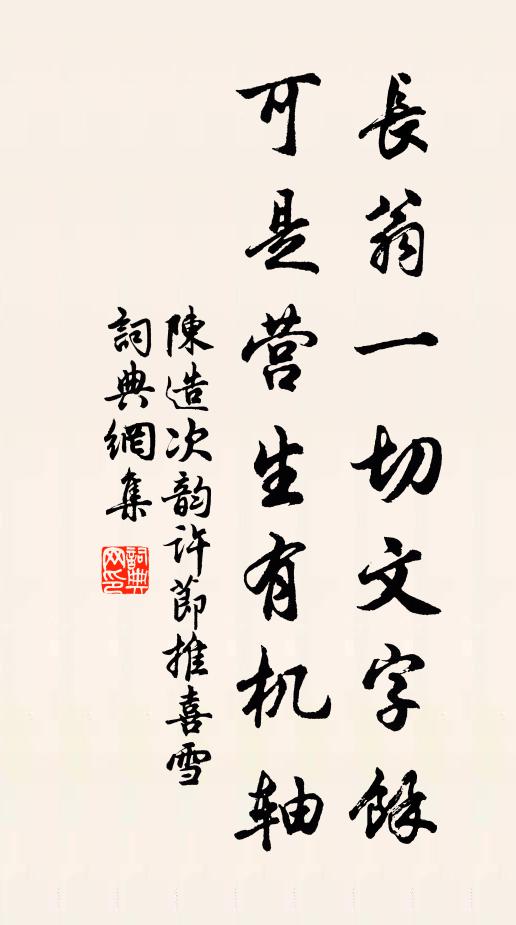 長翁一切文字餘
可是营生有机轴
陳造次韵许節推喜雪
詞典網集
詞典网印